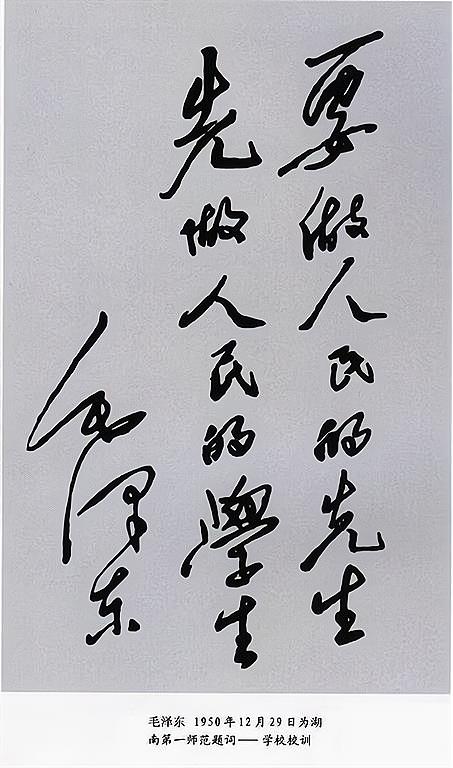 要做人民的先生
先做人民的學生
毛泽东
毛泽东 1950年12月29日为湖
南第一师范题词——学校校训